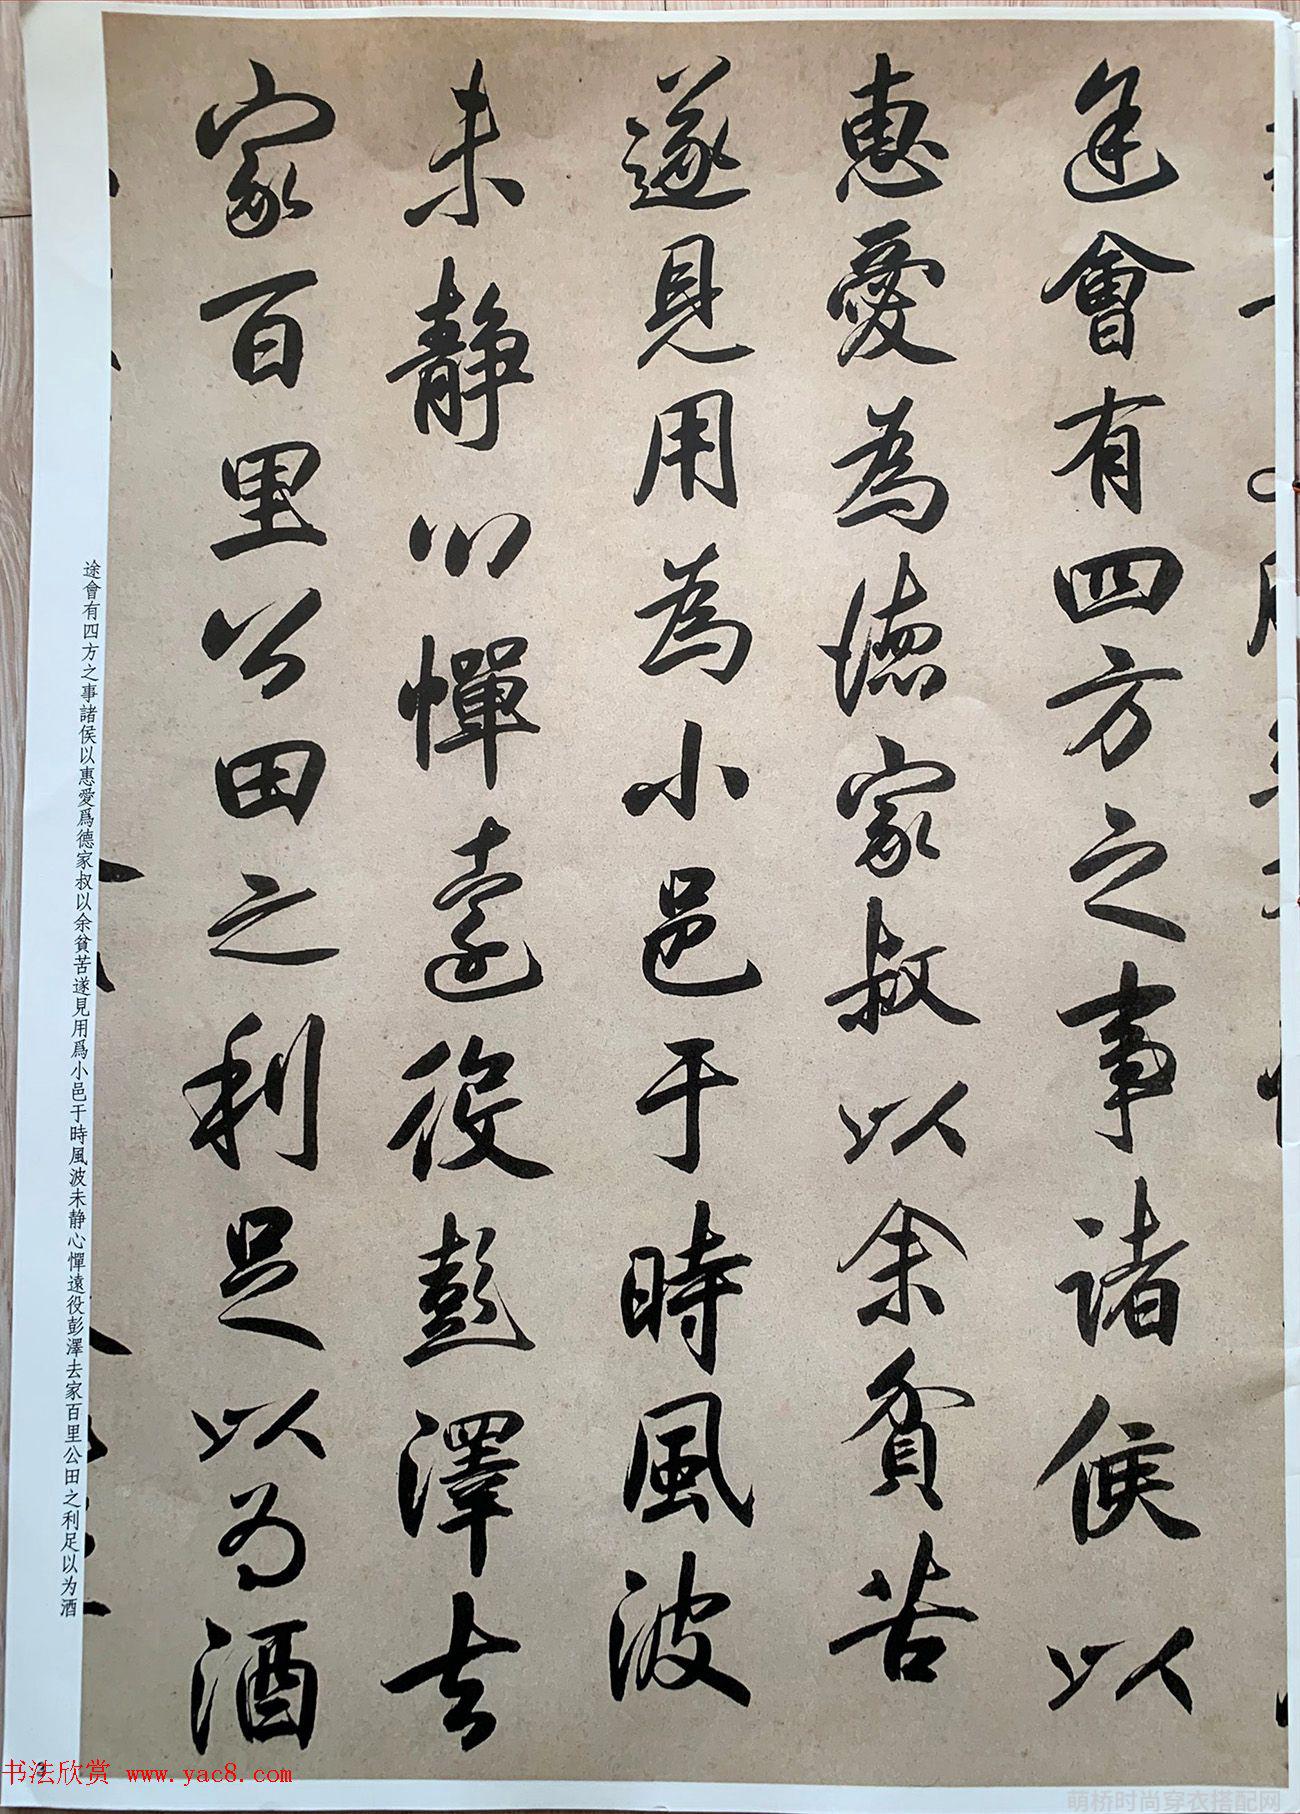 途會有四方之事諸侯以
惠愛為德家叔以余貧苦
遂見用為小邑于時風波
未静心憚遠役彭澤去
家百里公田之利足以为酒
途會有四方之事諸侯以惠愛爲德家叔以余貧苦遂見用爲小邑于時風波未静心憚遠役彭澤去家百里公田之利足以为酒
书法欣赏 www.yac8.com
萌桥时尚穿衣搭配网